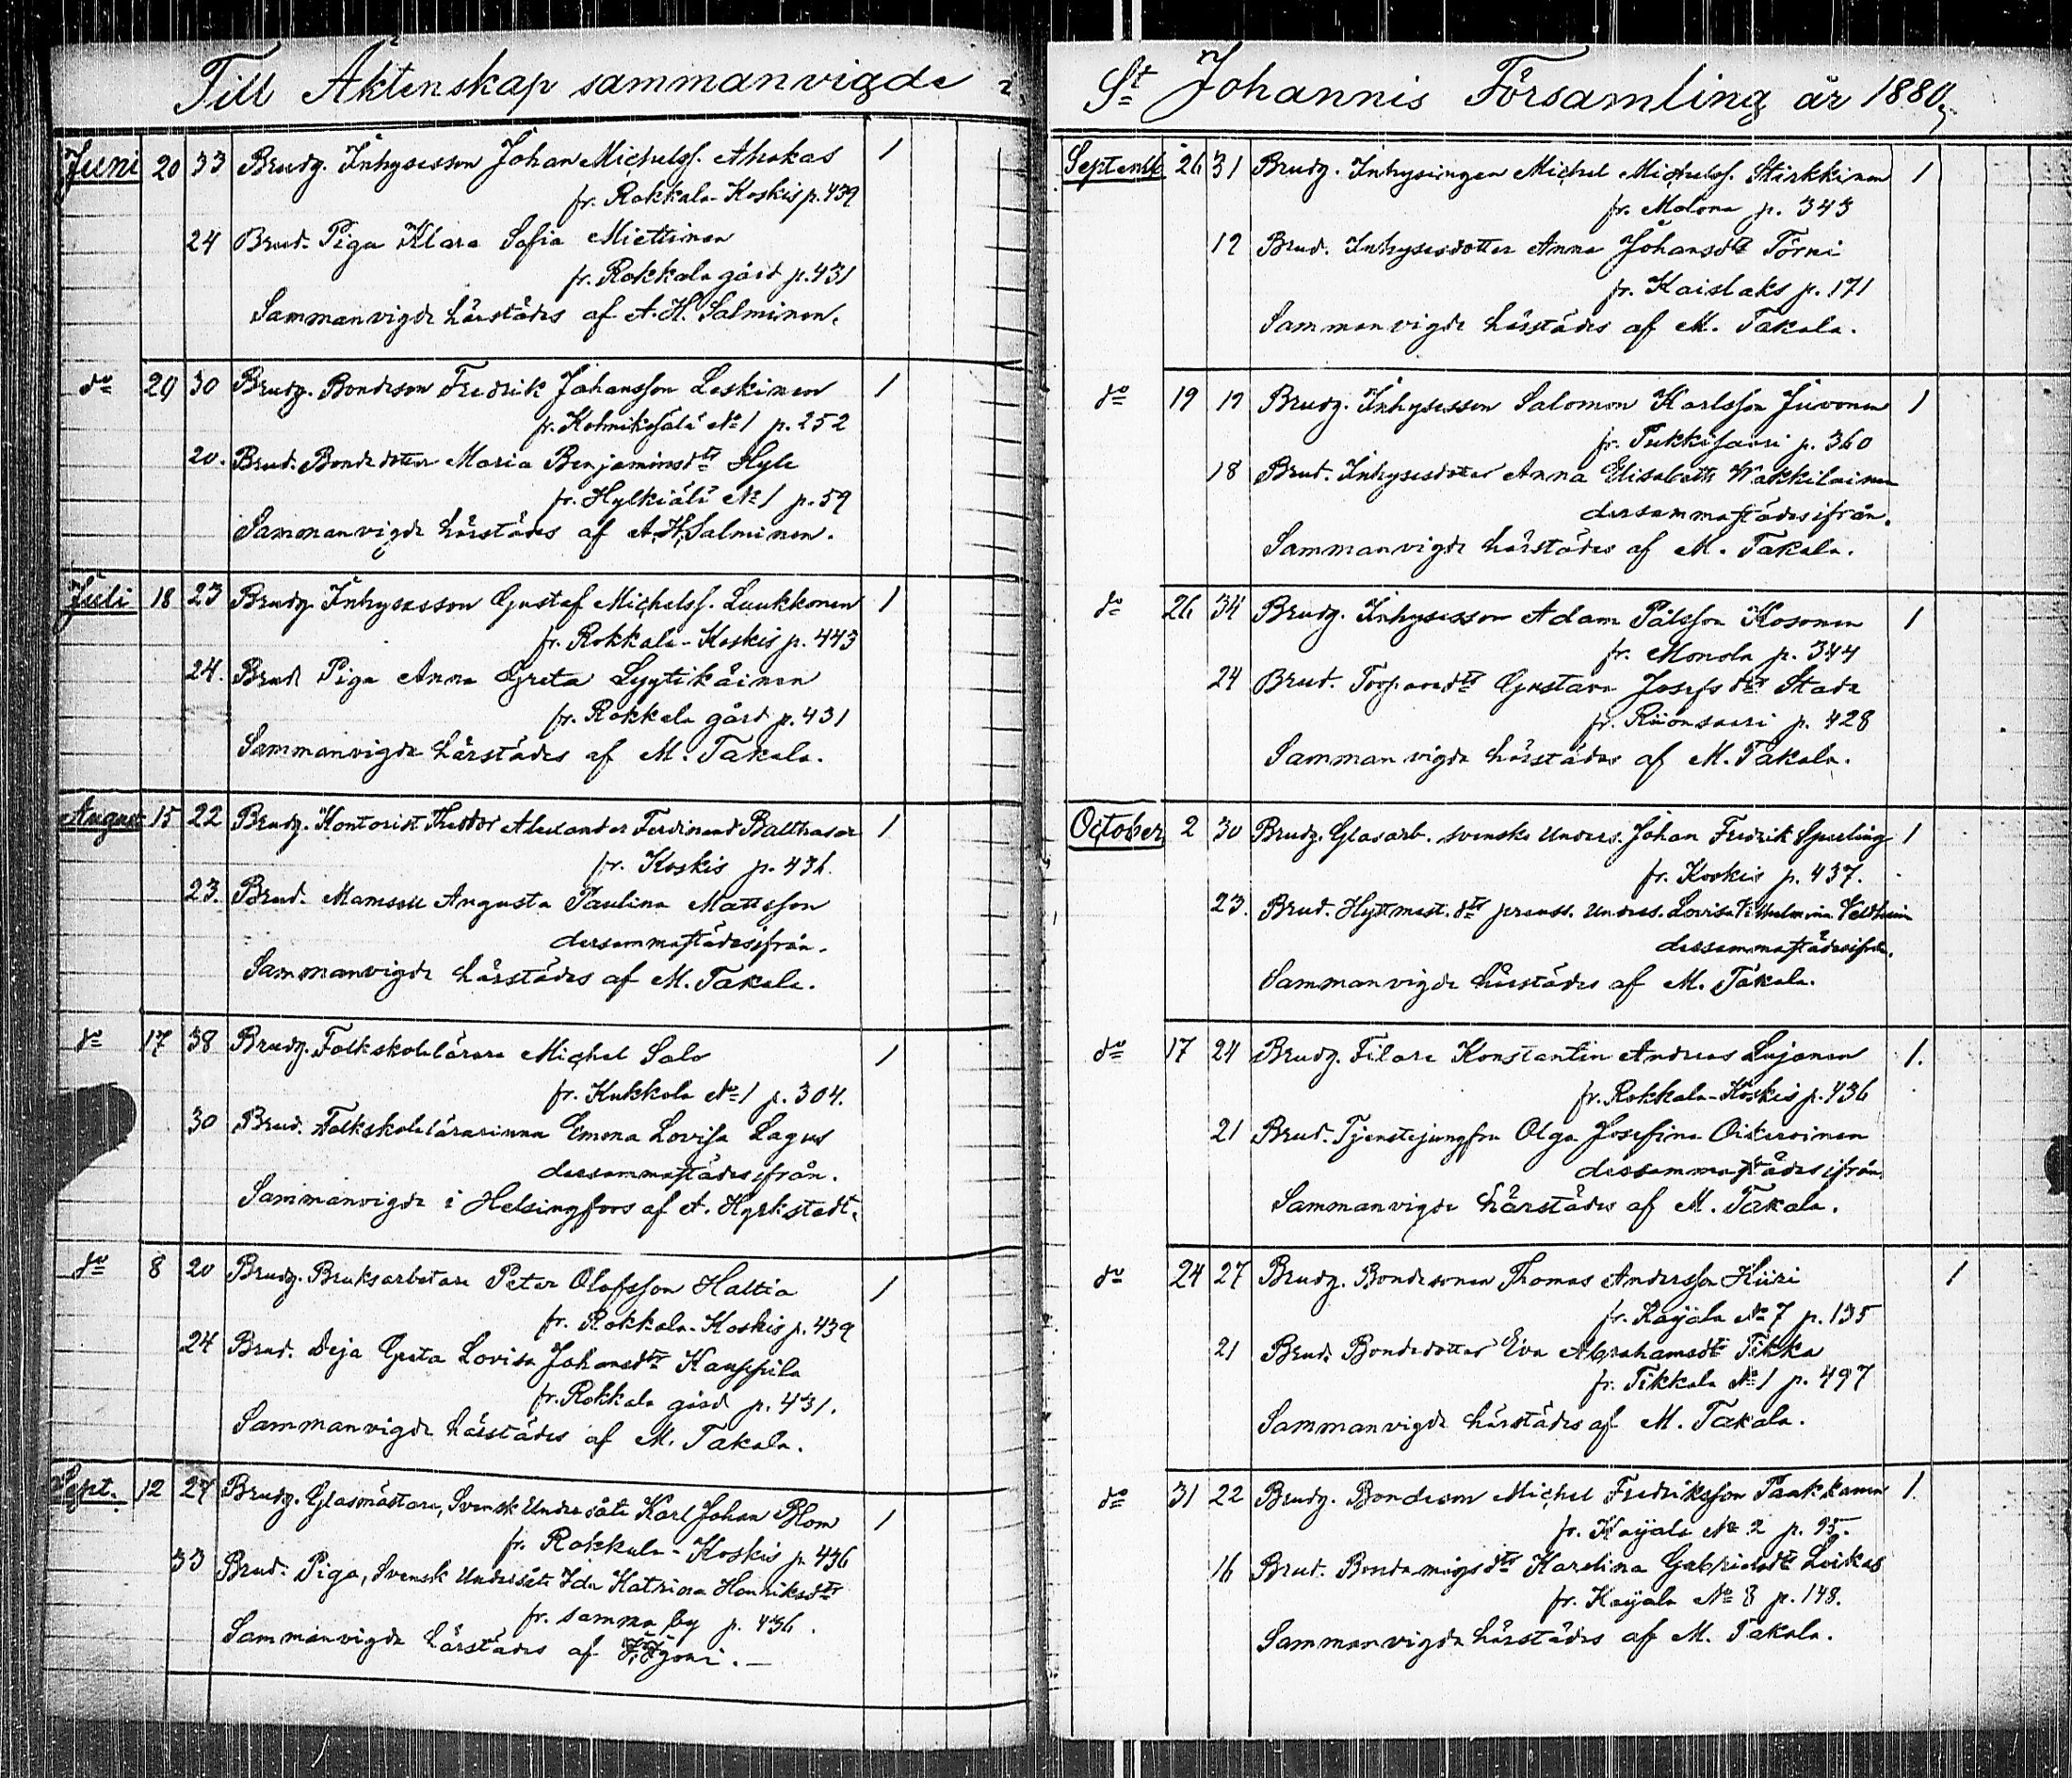 Till Äktenskap sammanvigde i
Juni 20 33 Brudg. Inhysesson Johan Michelss. Ahokas 1
fr. Rokkala-Koskis p. 439
24 Brud. Piga Klara Sofia Miettinen
fr. Rokkala gård p. 431
Sammanvigde härstädes af A. H. Salminen.
do 29 30 Brudg. Bondeson Fredrik Johansson Leskinen 1
fr. No 1 p. 252
20. Brud. Bondedotter Maria Benjaminsdtr Hyle
fr. Hylkiälä No 1 p. 59
Sammanvigde härstädes af A. H. Salminen.
Juli 18 23 Brudg. Inhysesson Gustaf Michelss. Luukkonen 1
fr. Rokkala-Koskis p. 443
24. Brud Piga Anna Greta Lyytikäinen
fr. Rokkala gård p. 431
Sammanvigde härstädes af M. Takala.
August 15 22 Brudg. Kontorist Theodor Alexander Ferdinand Balthasar 1
fr. Koskis p.
23. Brud. Mamsell Augusta Paulina Mattsson
dersammastädesifrån.
Sammanvigde härstädes af M. Takala.
do 17 38 Brudg. Folkskolelärare Michel Salo 1
fr. Kukkola No 1 p. 304.
30 Brud. Folkskolelärarinna Emma Lovisa Lagus
dersammastädesifrån.
Sammanvigde i Helsingfors af A. Hyrkstedt.
do 8 20 Brudg. Bruksarbetare Peter Olofsson Haltia 1
fr. Rokkala-Koskis p. 439
24 Brud. Deja Greta Lovisa Johansdtr Kauppila
fr. Rokkala gård p. 431.
Sammanvigde härstädes af M. Takala.
Sept. 12 27 Brudg. Glasmästare, Svensk Undersåte Karl Johan Blom 1
fr. Rokkala-Koskis p. 436
33 Brud. Piga, Svensk Undersåte Ida Katrina Henriksdtr
fr. samma by p. 436.
Sammanvigde härstädes af
St Johannis Församling år 1880.
Septemb. 26 31 Brudg. Inhysingen Michel Michelss. Stirkkinen 1
fr. Molona p. 343
19 Brud. Inhysesdotter Anna Johansdtr Törni
fr. Kaislaks p. 171
Sammanvigde härstädes af M. Takala.
do 19 19 Brudg. Inhysesson Salomon Karlsson Juvonen 1
fr. Pukkisaari p. 360
18 Brud. Inhysesdotter Anna Elisabeth Wakkilainen
dersammastädesifrån.
Sammanvigde härstädes af M. Takala.
do 26 34 Brudg. Inhysesson Adam Pålsson Kosonen 1
fr. Monola p. 344
24 Brud. Torparedtr Gustava Josefsdtr Stade
fr. Riionsaari p. 428
Sammanvigde härstädes af M. Takala.
October 2 30 Brudg. Glasarb. svenske Unders. Johan Fredrik Sperling 1
fr. Koskis p. 437.
23. Brud. Hyttmest. dtr preuss. Unders. Lovisa Vilhelmina Veldheim
dersammastädesifrån.
Sammanvigde härstädes af M. Takala.
do 17 24 Brudg. Filare Konstantin Andreas Lujanen 1.
fr. Rokkala-Koskis p. 436
21 Brud. Tjenstejungfru Olga Josefina Oikeroinen
dersammastädesifrån.
Sammanvigde härstädes af M. Takala.
do 24 27 Brudg. Bondesonen Thomas Andersson Kiiri 1
fr. Kaÿala No 7 p. 135
21 Brud. Bondedotter Eva Abrahamsdtr Tikka
fr. Tikkala No 1 p. 497
Sammanvigde härstädes af M. Takala.
do 31 22 Brudg. Bondeson Michel Fredriksson Paakkanen 1.
fr. Kaÿala No 2 p. 95.
16 Brud. Bondemågsdtr Karolina Gabrielsdtr Loikas
fr. Kaÿala No 8 p. 148.
Sammanvigde härstädes af M. Takala.